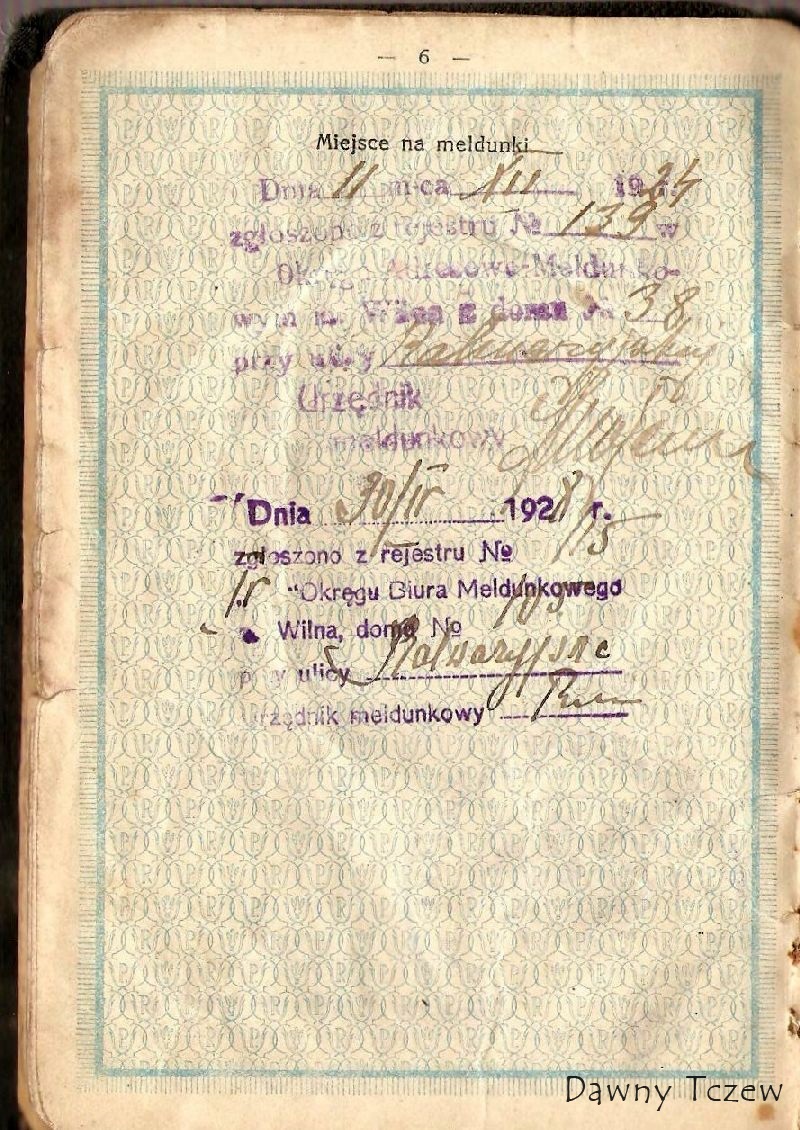 — 6 —
Miejsce na meldunki
Dnia 11 m-ca XII 1924
zgłoszono z rejestru № 139 w
Okręg. Adresowo-Meldunko-
wym m. Wilna z domu № 38
przy ulicy Kalwaryjskiej
Urzędnik
meldunkowy
Dnia 30/IV 1928 r.
zgłoszono z rejestru № 115
IV Okręgu Biura Meldunkowego
m. Wilna, domu №
przy ulicy Kalwaryjskie
Urzędnik meldunkowy
Dawny Tczew